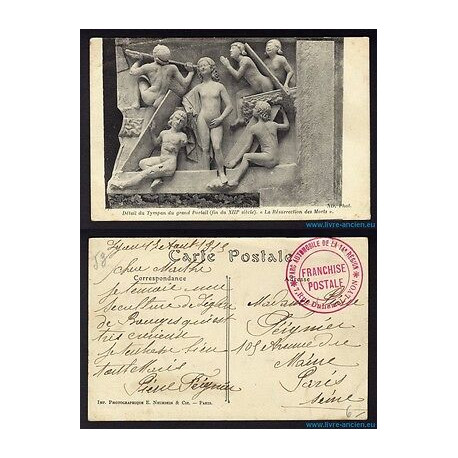 www.livre-ancien.eu
ND. Phot.
Détail du Tympan du grand Portail (fin du XIIIe siècle). « La Résurrection des Morts ».
Carte Postale
Correspondance
Adresse
PARC AUTOMOBILE DE LA 14e RÉGION
FRANCHISE
POSTALE
LYON
Lyon 1915
Chère Marthe
je t'envoie une
sculpture de l'église
de Bourges qui est
très curieuse
je t'embrasse bien
Pierre Peignier
Madame
Peignier
105 Avenue du
Maine
Paris
Seine
IMP. PHOTOGRAPHIQUE E. NEURDEIN & CIE. - PARIS.
www.livre-ancien.eu